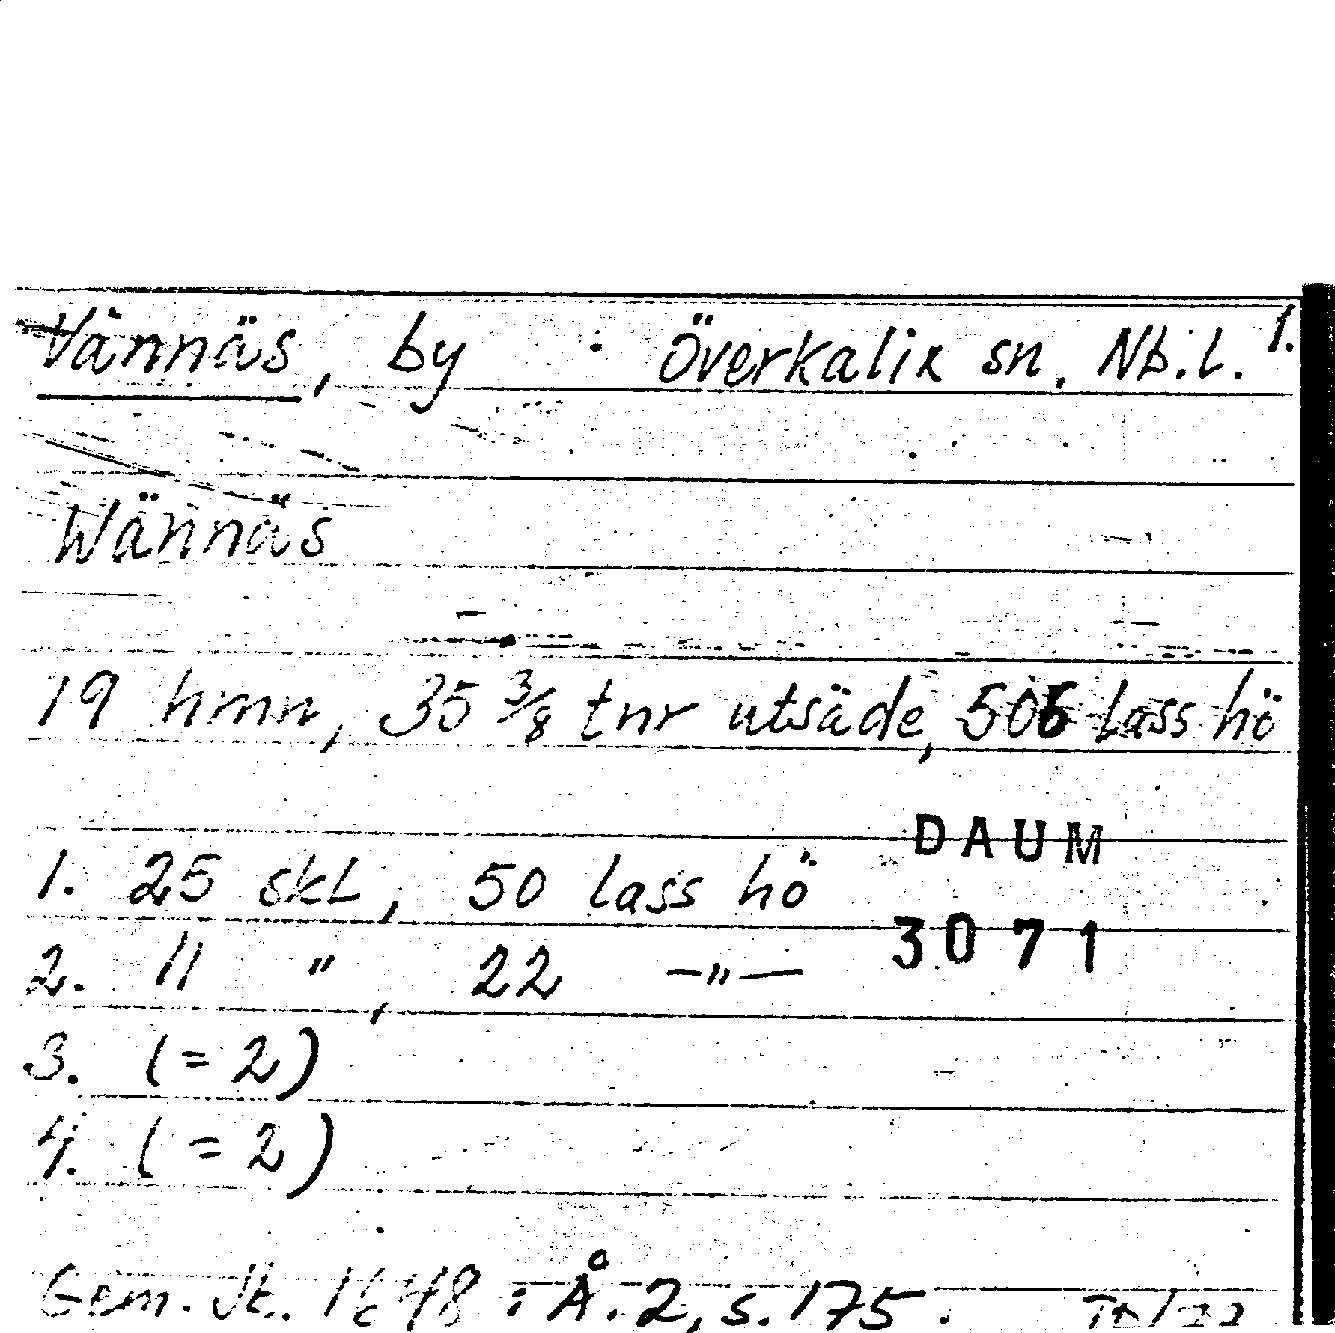 Vännäs, by : Överkalix sn. Nb.l. 1.
Wännäs
19 hmn, 35 3/8 tnr utsäde, 506 lass hö
DAUM
1. 25 skl, 50 lass hö
3071
2. 11 ", 22 —"—
3. (= 2)
4. (= 2)
Gem. Jb. 1648 : Å. 2, s. 175.